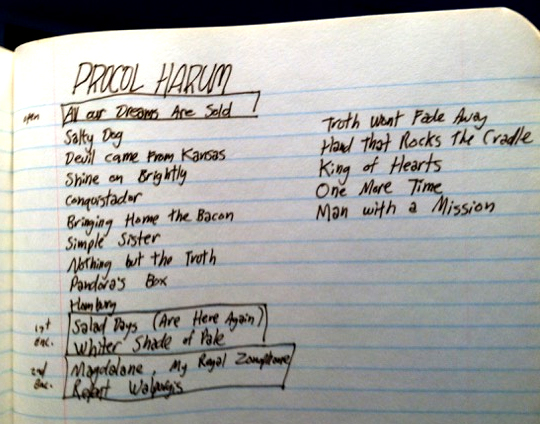 PROCOL HARUM
open All our Dreams Are Sold
Salty Dog
Devil came From Kansas
Shine on Brightly
Conquistador
Bringing Home the Bacon
Simple Sister
Nothing but the Truth
Pandora's Box
Homburg
1st enc. Salad Days (Are Here Again)
Whiter Shade of Pale
2nd enc. Magdalene, My Regal Zonophone
Repent Walpurgis
Truth Wont Fade Away
Hand That Rocks The Cradle
King of Hearts
One More Time
Man with a Mission